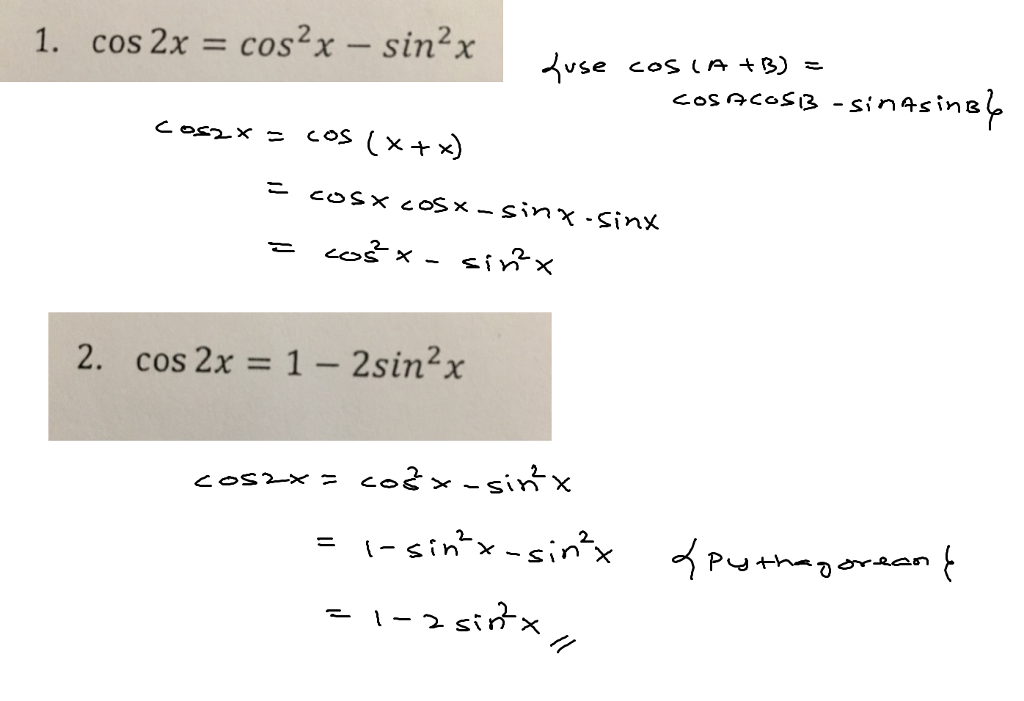 1. cos 2x = cos²x − sin²x
{use cos(A+B) =
cosAcosB - sinAsinB}
cos2x = cos(x+x)
= cosx cosx - sinx·sinx
= cos²x - sin²x
2. cos 2x = 1 − 2sin²x
cos2x = cos²x - sin²x
= 1-sin²x - sin²x {Pythagorean}
= 1-2 sin²x //